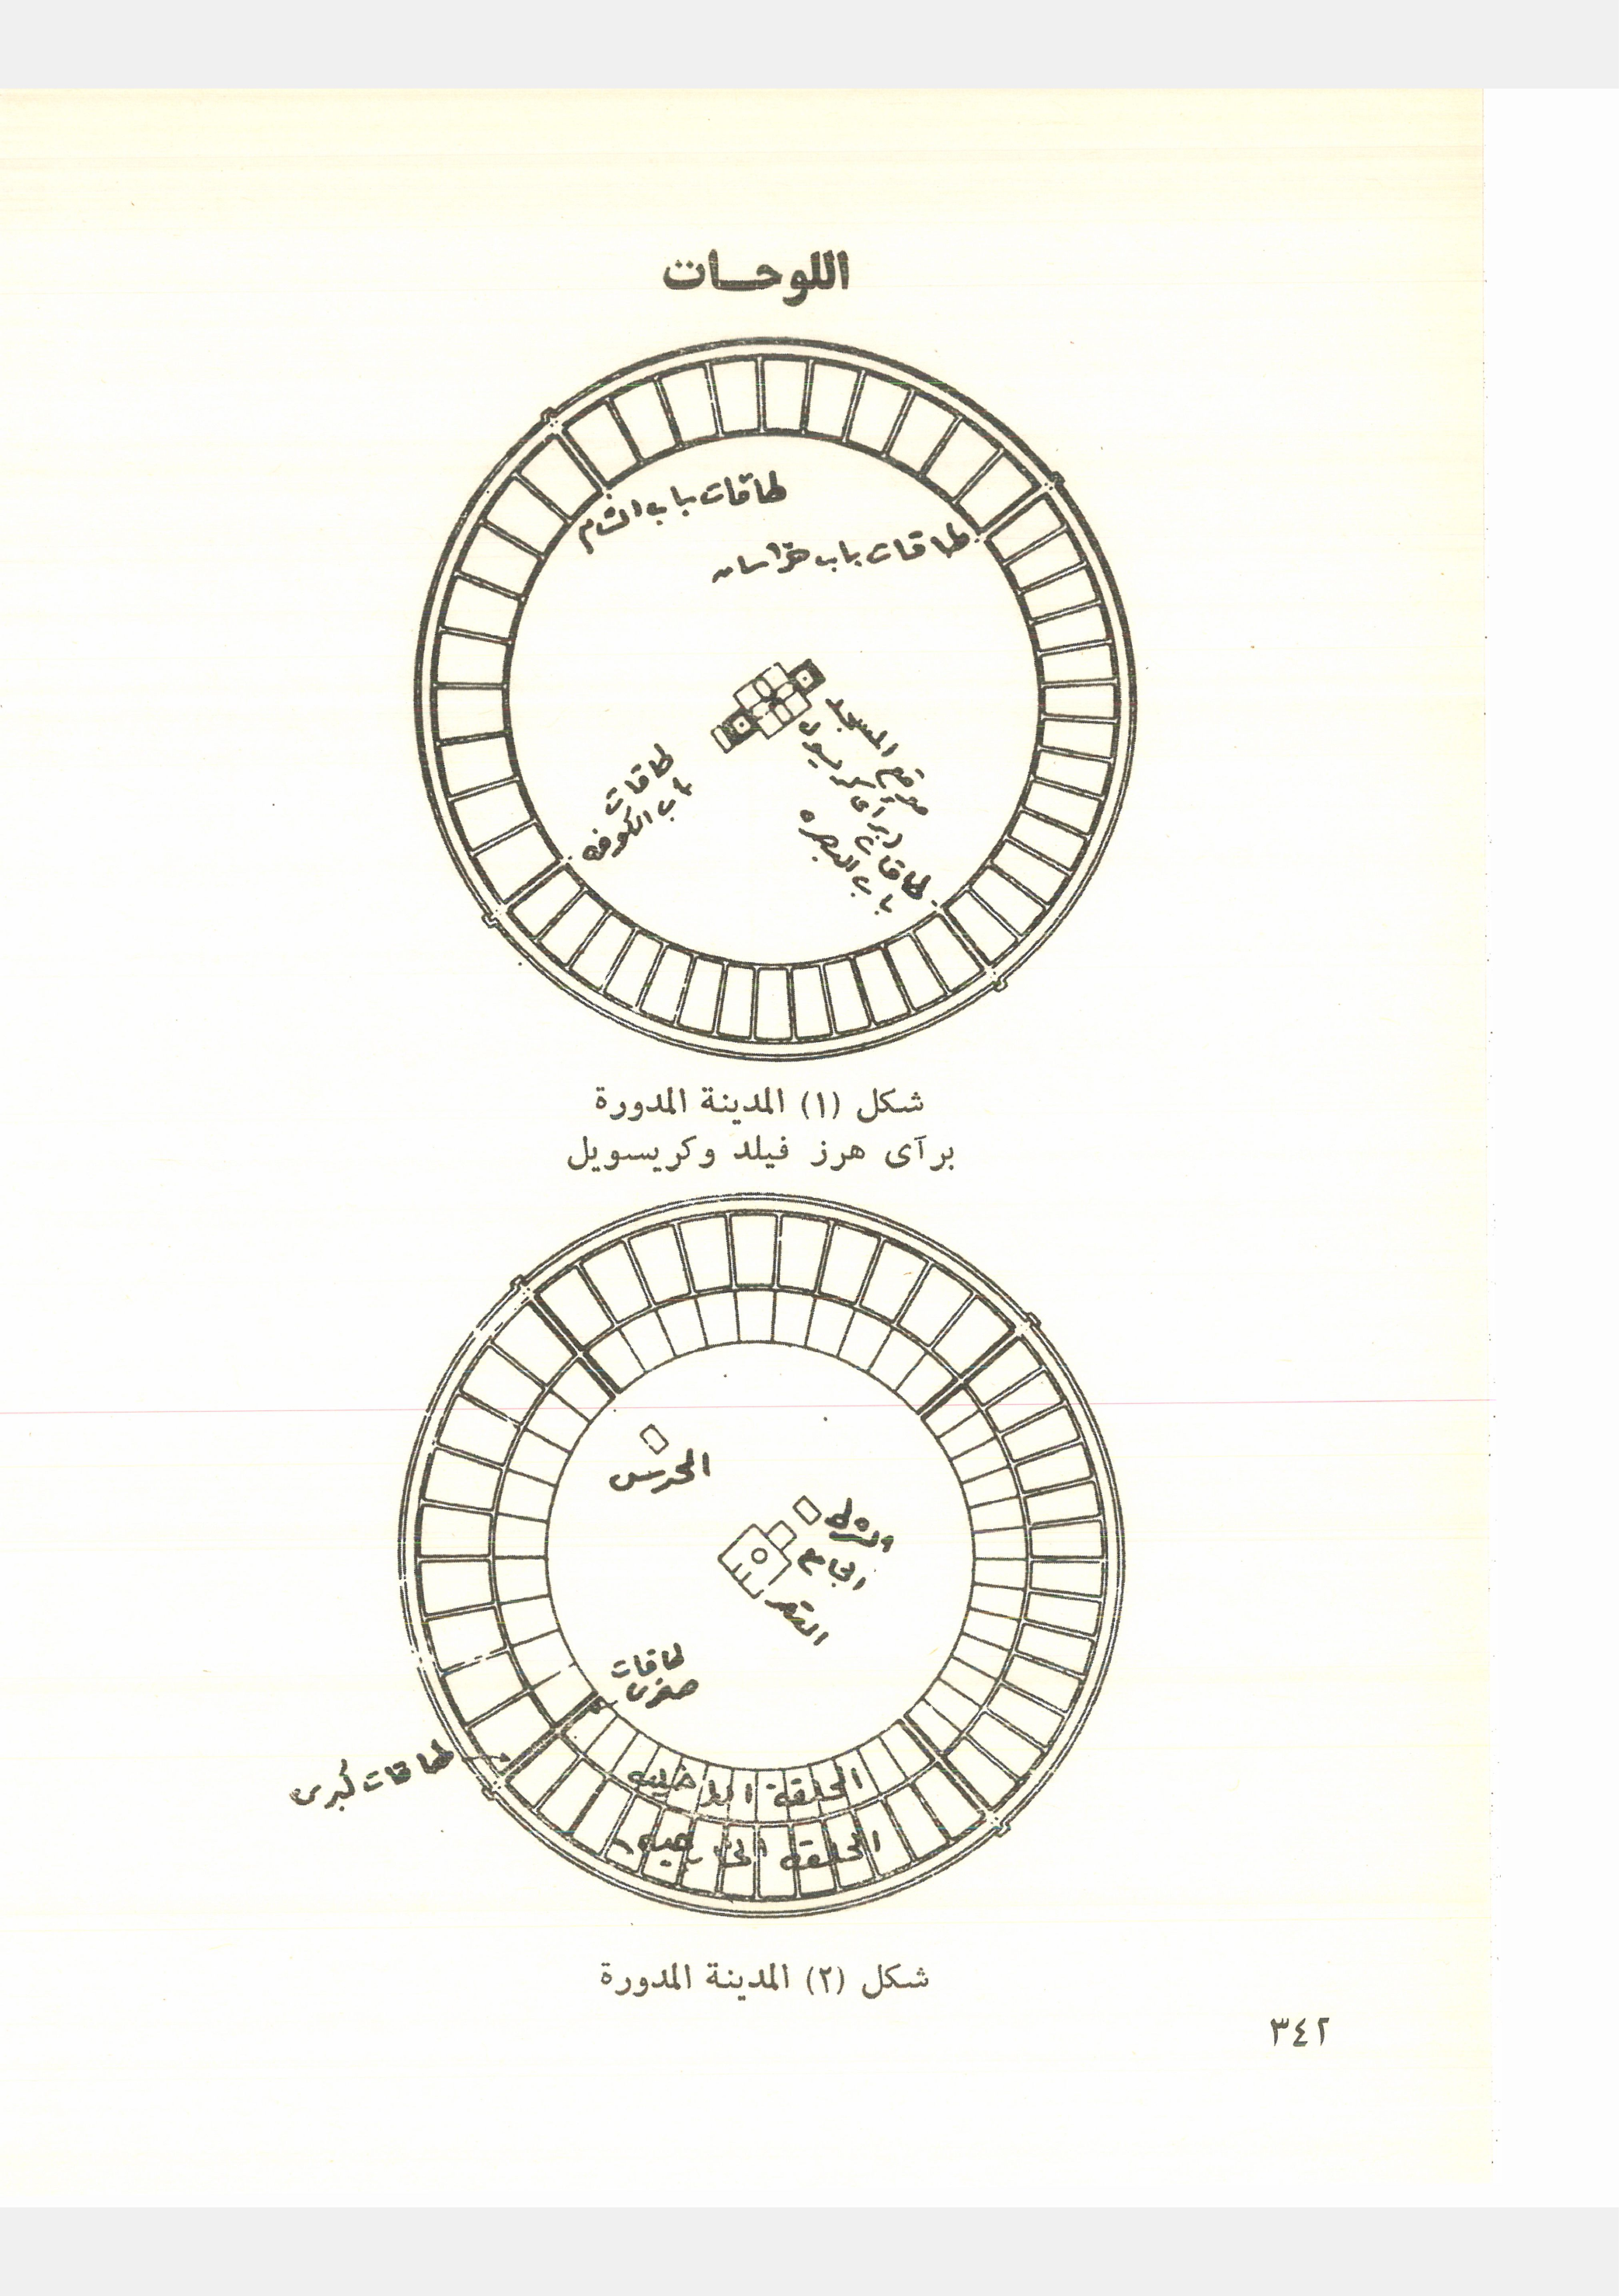 اللوحـات
طاقات باب الشام
طاقات باب خراسان
موقع المسجد
برأى كريسول
طاقات
باب الكوفه
طاقات
باب البصره
شكل (١) المدينة المدورة
برآى هرز فيلد وكريسويل
الحرس
الشرطه
الجامع
القصر
طاقات
صغرى
طاقات كبرى
الحلقة الداخليه
الحلقة الخارجيه
شكل (٢) المدينة المدورة
٣٤٢